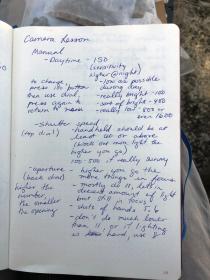 Camera Lesson
Manual
- Daytime - ISO
(sensitivity
higher @ night)
to change,
press ISO button
then use dial,
press again to
return to menu
- low as possible
during day
- really bright - 100
- sort of bright - 400
- really low - 800 or
even 1600
- Shutter speed
(top dial)
- handheld should be at
least 60 or above
(block out more light the
higher you go)
100-500 if really sunny
- aperture
(back dial)
higher the
number
the smaller
the opening
- higher you go the
more things in focus
- mostly do 11, lets in
decent amount of light
but still in focus
- state of hands 5.6
- don't do much lower
than 11, or if lighting
is hard, use 8